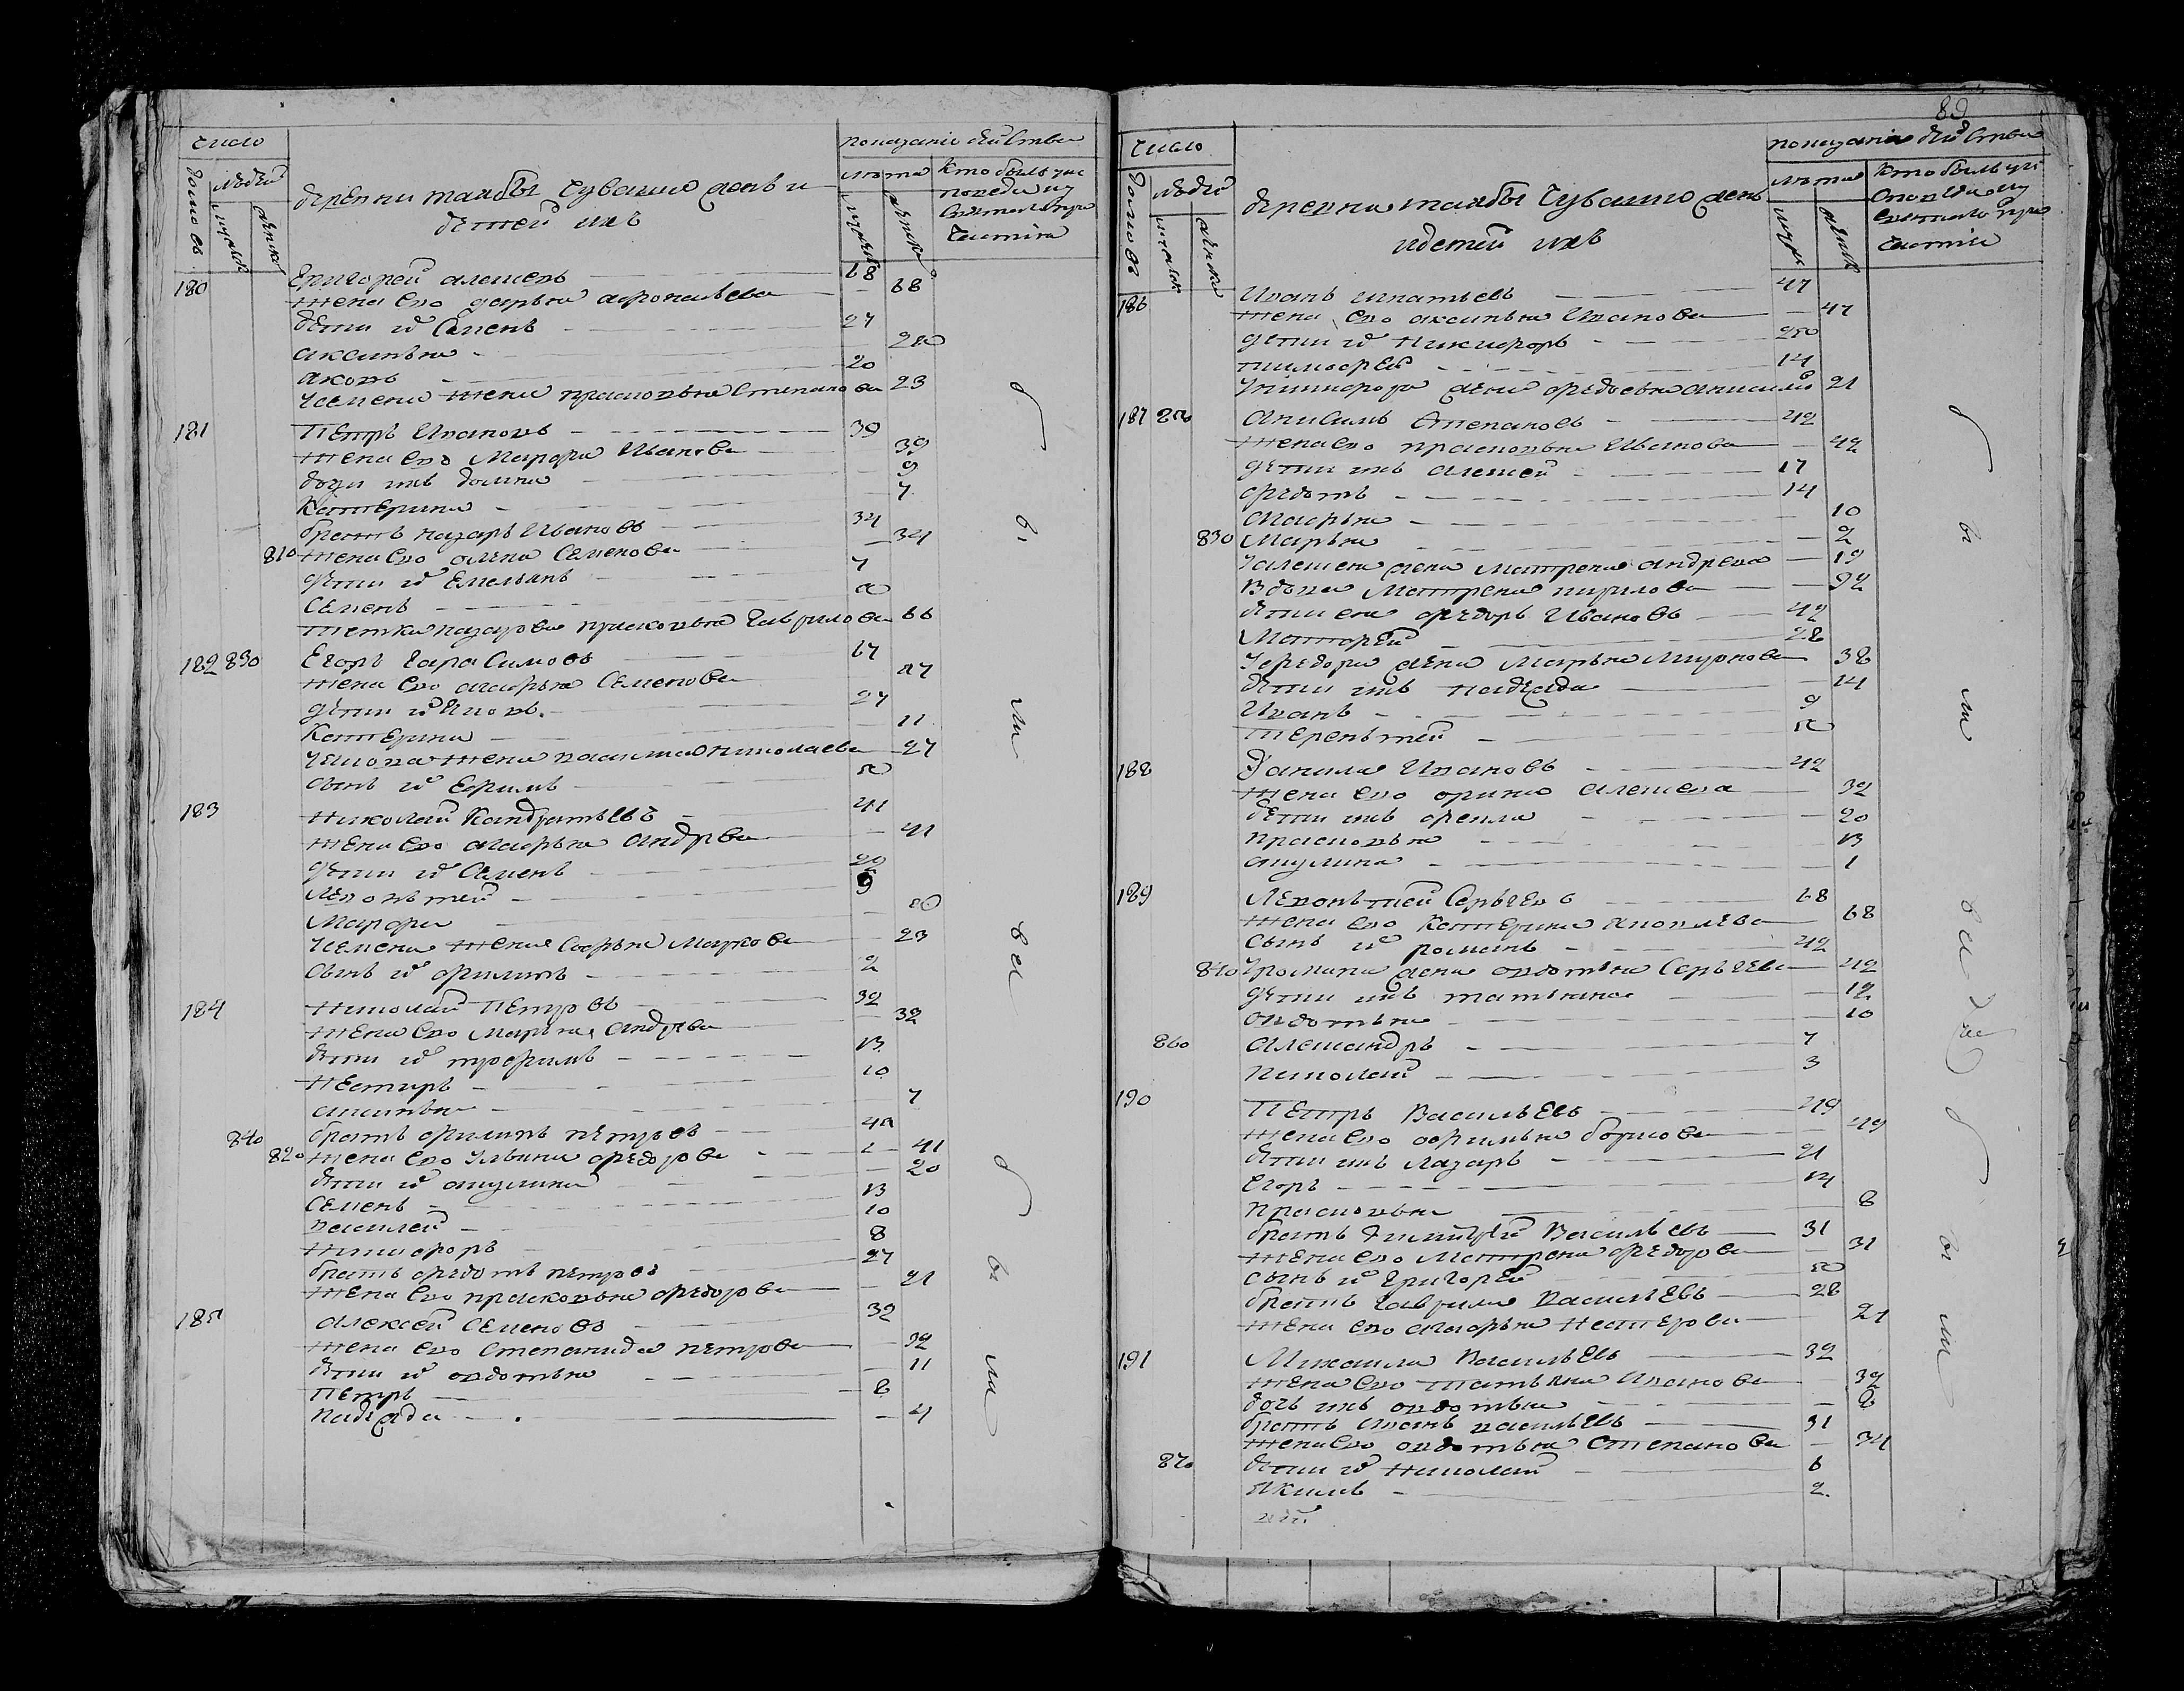 число
домовъ
людей
мужеск
женск
деревни талбы чувашъ женъ и
детей ихъ
показание действа
лета
мужеск
женск
кто былъ у ис
поведи и у
святаго при
частия
180 Григорей алексевъ 68
жена ево дарья афонасьева 68
дети их Семенъ 27
аксинья
яковъ 20
У Семена жена прасковья Степанова 23
181 Петръ Ивановъ 39
жена ево Марфа Иванова 39
дочи ихъ домна 9
Катерина 7
братъ назаръ Ивановъ 34
810 жена ево алена Семенова 34
дети их Емельянъ 7
Семенъ
Тетка назарова прасковья Гаврилова 66
182 830 Егоръ Гарасимовъ 67
жена ево агафья Семенова
дети их Яковъ 27
Катерина 11
У Якова жена василиса николаева 27
сынъ их Ефимъ
183 Николай Кандратьевъ 41
жена ево агафья андрева 41
дети их Семенъ
Левонтей 9
Марфа
У Семена жена Софья Маркова 23
сынъ их филипъ 2
184 Николай Петровъ 32
жена ево Марья андрева 32
дети их трофимъ 13
Нестеръ 10
аксинья 7
840 братъ филипъ петровъ
820 жена ево Ульяна федорова 41
дети их акулина 20
Семенъ 13
василей 10
Никифоръ 8
братъ федотъ петровъ 27
жена ево прасковья федорова 21
185 алексей Семеновъ 32
жена ево Степанида петрова 32
дети их овдотья 11
Петръ 6
надежда 4
89
число
домовъ
людей
мужеск
женск
деревни талбы чувашъ женъ
и детей ихъ
показание действа
лета
мужеск
женск
кто былъ у и
споведи и у
святаго при
частия
186 Иванъ игнатьевъ 47
жена ево аксинья Иванова 47
дети их Никифоръ
тимофей 14
У никифора жена федосья анисимов 21
187 Анисимъ Степановъ 42
жена ево прасковья Иванова 42
дети ихъ алексей 17
федотъ 14
агафья 10
830 Марья 2
У алексея жена Матрена андрева 19
Вдова Матрена кирилова 92
дети ея федоръ Ивановъ 42
Матфей 28
У федора жена Марья Миронова 38
дети ихъ надежда 14
Иванъ 9
Терентей
188 Данила Ивановъ 42
жена ево орина алексева 32
дети ихъ фекла 20
прасковья 13
акулина 1
189 Левонтей Сергеевъ 68
жена ево Катерина яковлева 68
сынъ их романъ 42
840 У романа жена овдотья Сергеева 42
дети ихъ татьяна 12
овдотья 10
860 александръ 7
николай 3
190 Петръ Васильевъ 49
жена ево офимья борисова 49
дети ихъ лазарь 21
Егоръ 14
прасковья 6
братъ димитрей Васильевъ 31
жена ево Матрена федорова 31
сынъ их Григорей
братъ гаврила Васильевъ 28
жена ево агафья Нестерова 21
191 Михаила Васильевъ 32
жена ево Татьяна Иванова 32
дочь ихъ овдотья 6
братъ иванъ васильевъ 31
жена ево овдотья Степанова 34
870 дети их николай 6
якимъ 2